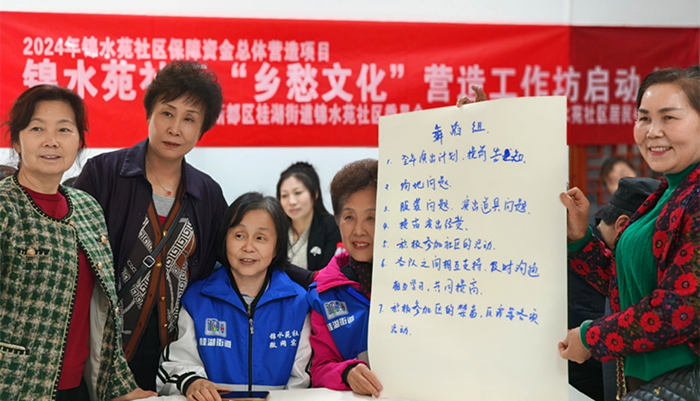 2024年锦水苑社区保障资金总体营造项目
锦水苑社 “乡愁文化”营造工作坊启动
都区桂湖街道锦水苑社区
舞蹈组
1. 全年演出计划、提前告知
2. 场地问题
3. 服装问题、演出道具问题
4. 提高演出经费
5. 积极参加社区的活动
6. 各队之间相互支持、及时沟通
相互学习、共同提高
7. 积极参加区的 、区 等各项
活动
锦水苑社
桂湖街道